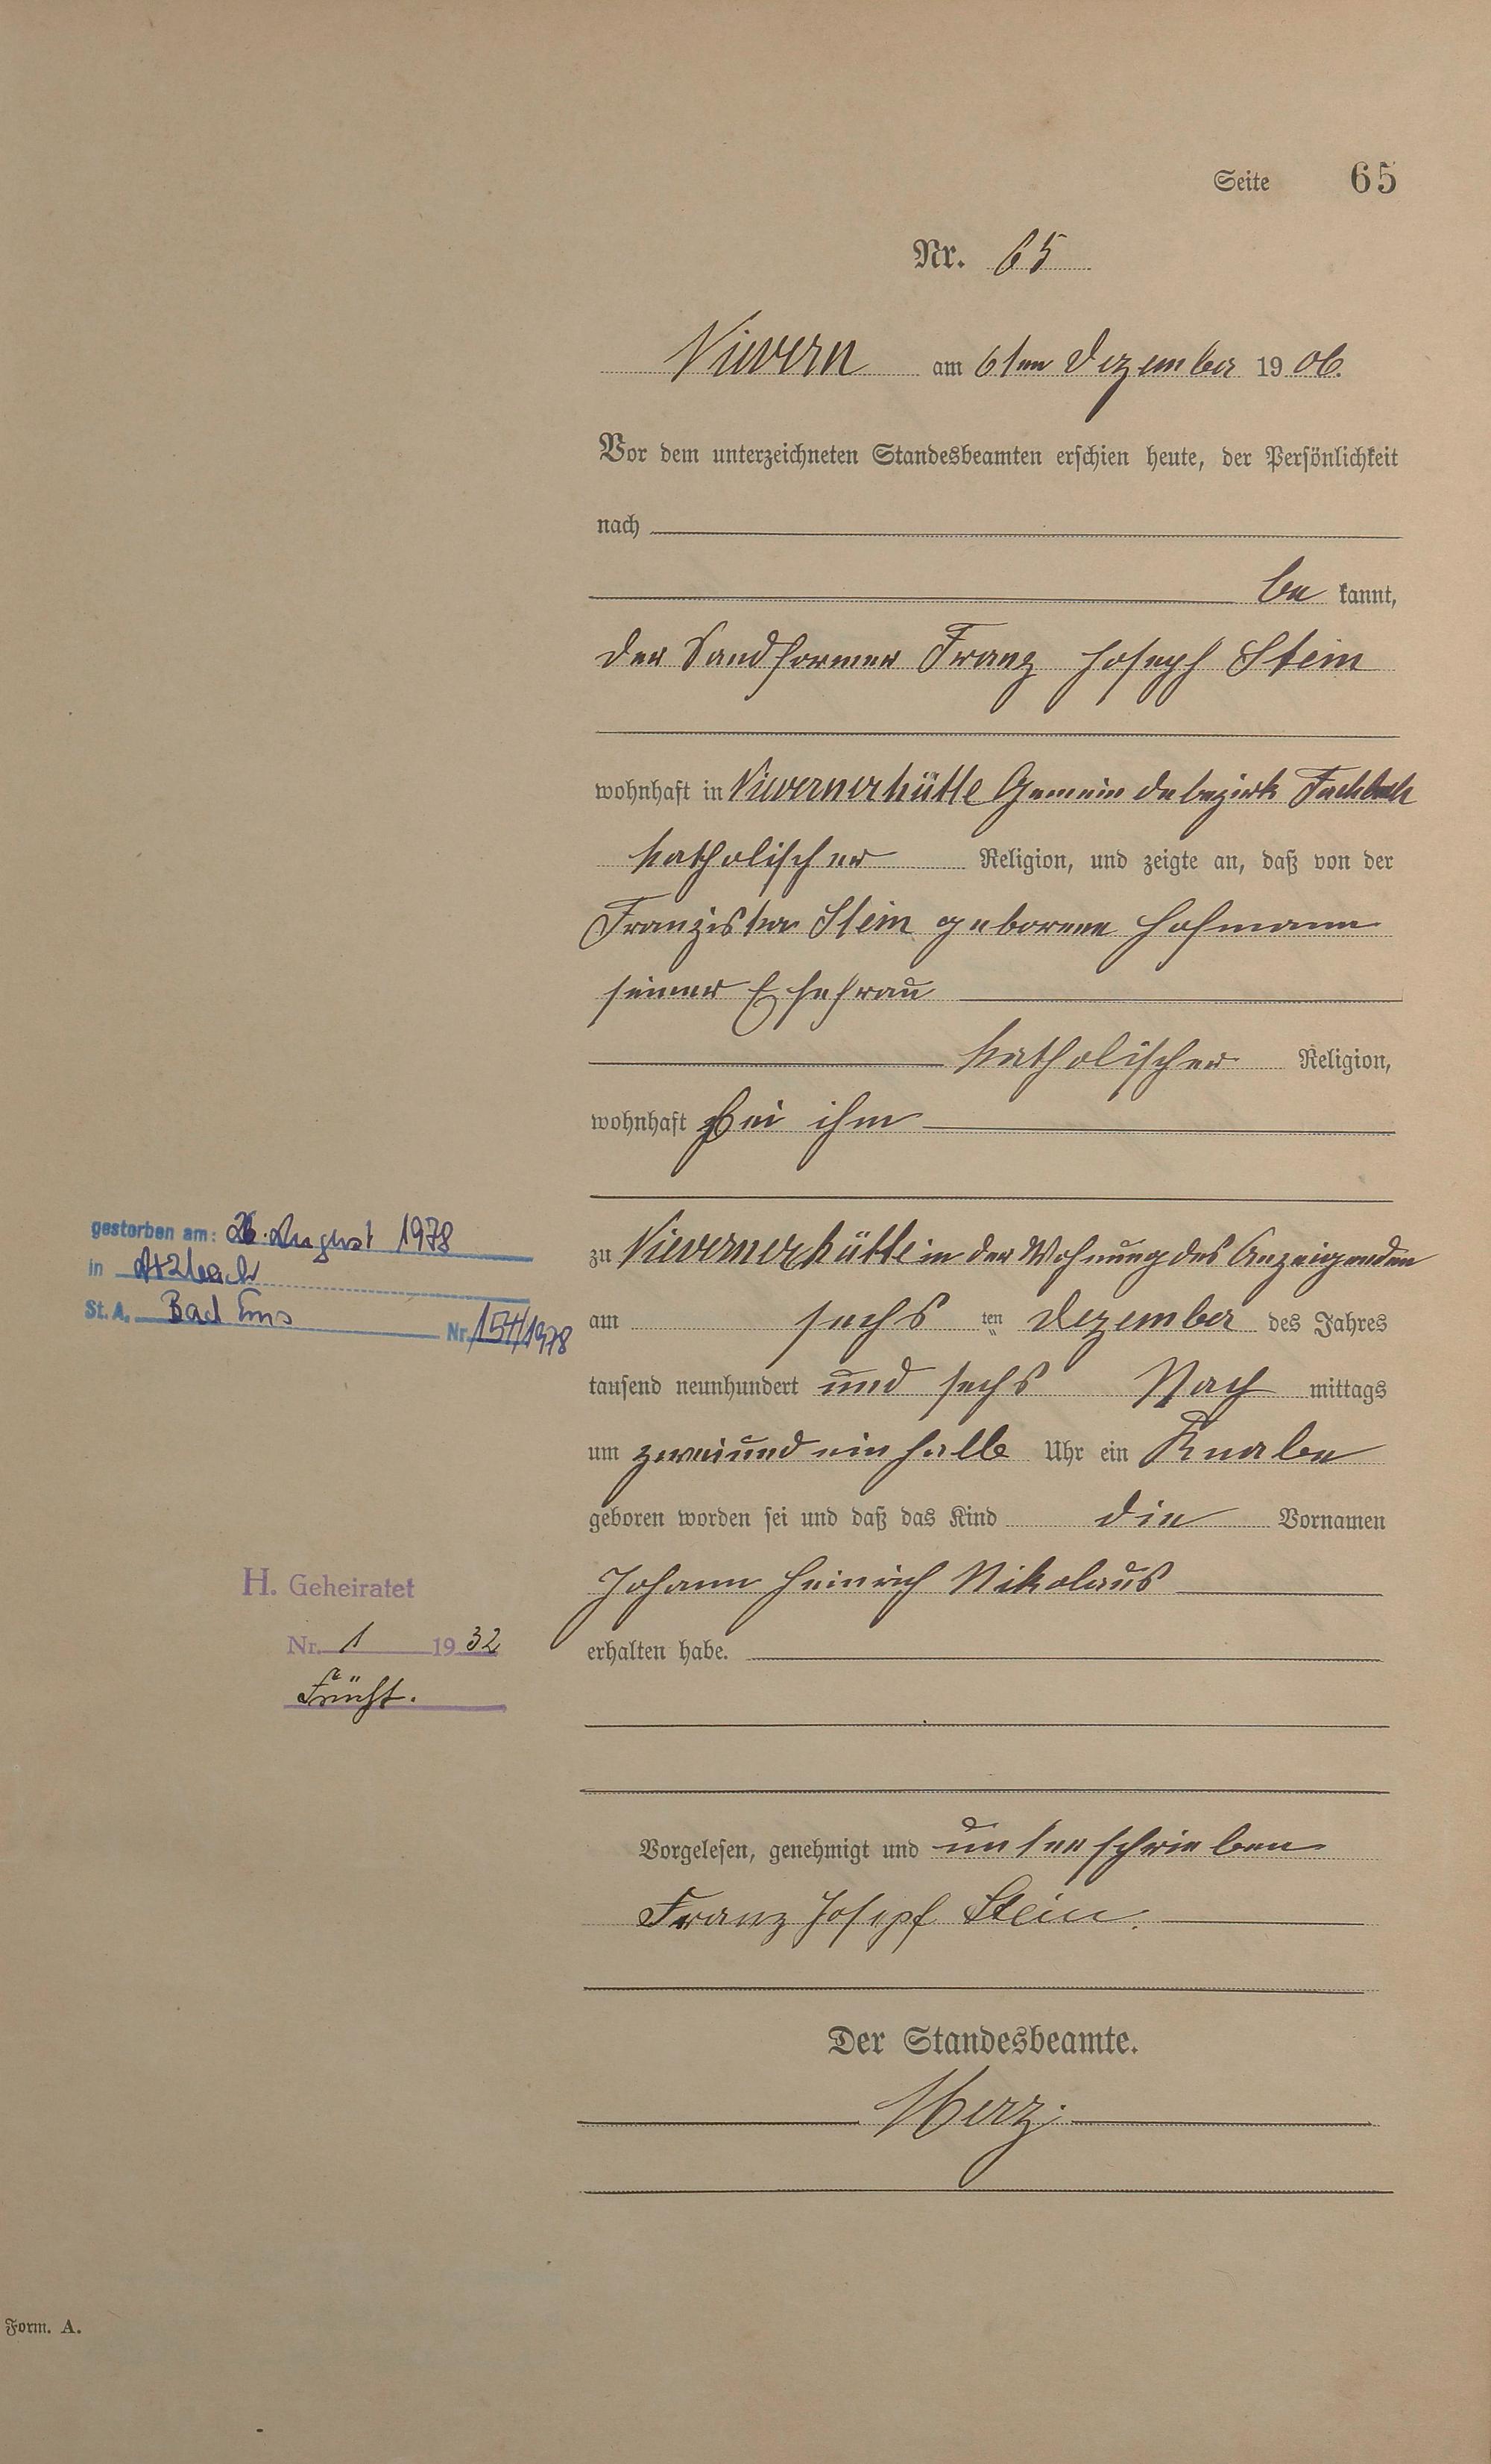 Seite 65
Nr. 65
Nievern am 6ten Dezember 1906.
Vor dem unterzeichneten Standesbeamten erschien heute, der Persönlichkeit
nach
be kannt,
der Sandformer Franz Joseph Stein
wohnhaft in Nievernerhütte Gemeindebezirk Fachbach
katholischer Religion, und zeigte an, daß von der
Franziska Stein geborene Hofmann
seiner Ehefrau
katholischer Religion,
wohnhaft bei ihm
zu Nievernerhütte in der Wohnung des Anzeigenden
am sechs ten Dezember des Jahres
tausend neunhundert und sechs Nach mittags
um zweiundeinhalb Uhr ein Knabe
geboren worden sei und daß das Kind die Vornamen
Johann Heinrich Nikolaus
erhalten habe.
Vorgelesen, genehmigt und unterschrieben
Franz Josepf Stein.
Der Standesbeamte.
Merz.
gestorben am: 26. August 1978
in
St. A. Bad Ems
Nr. 154/1978
H. Geheiratet
Nr. 1 1932
Frücht.
Form. A.